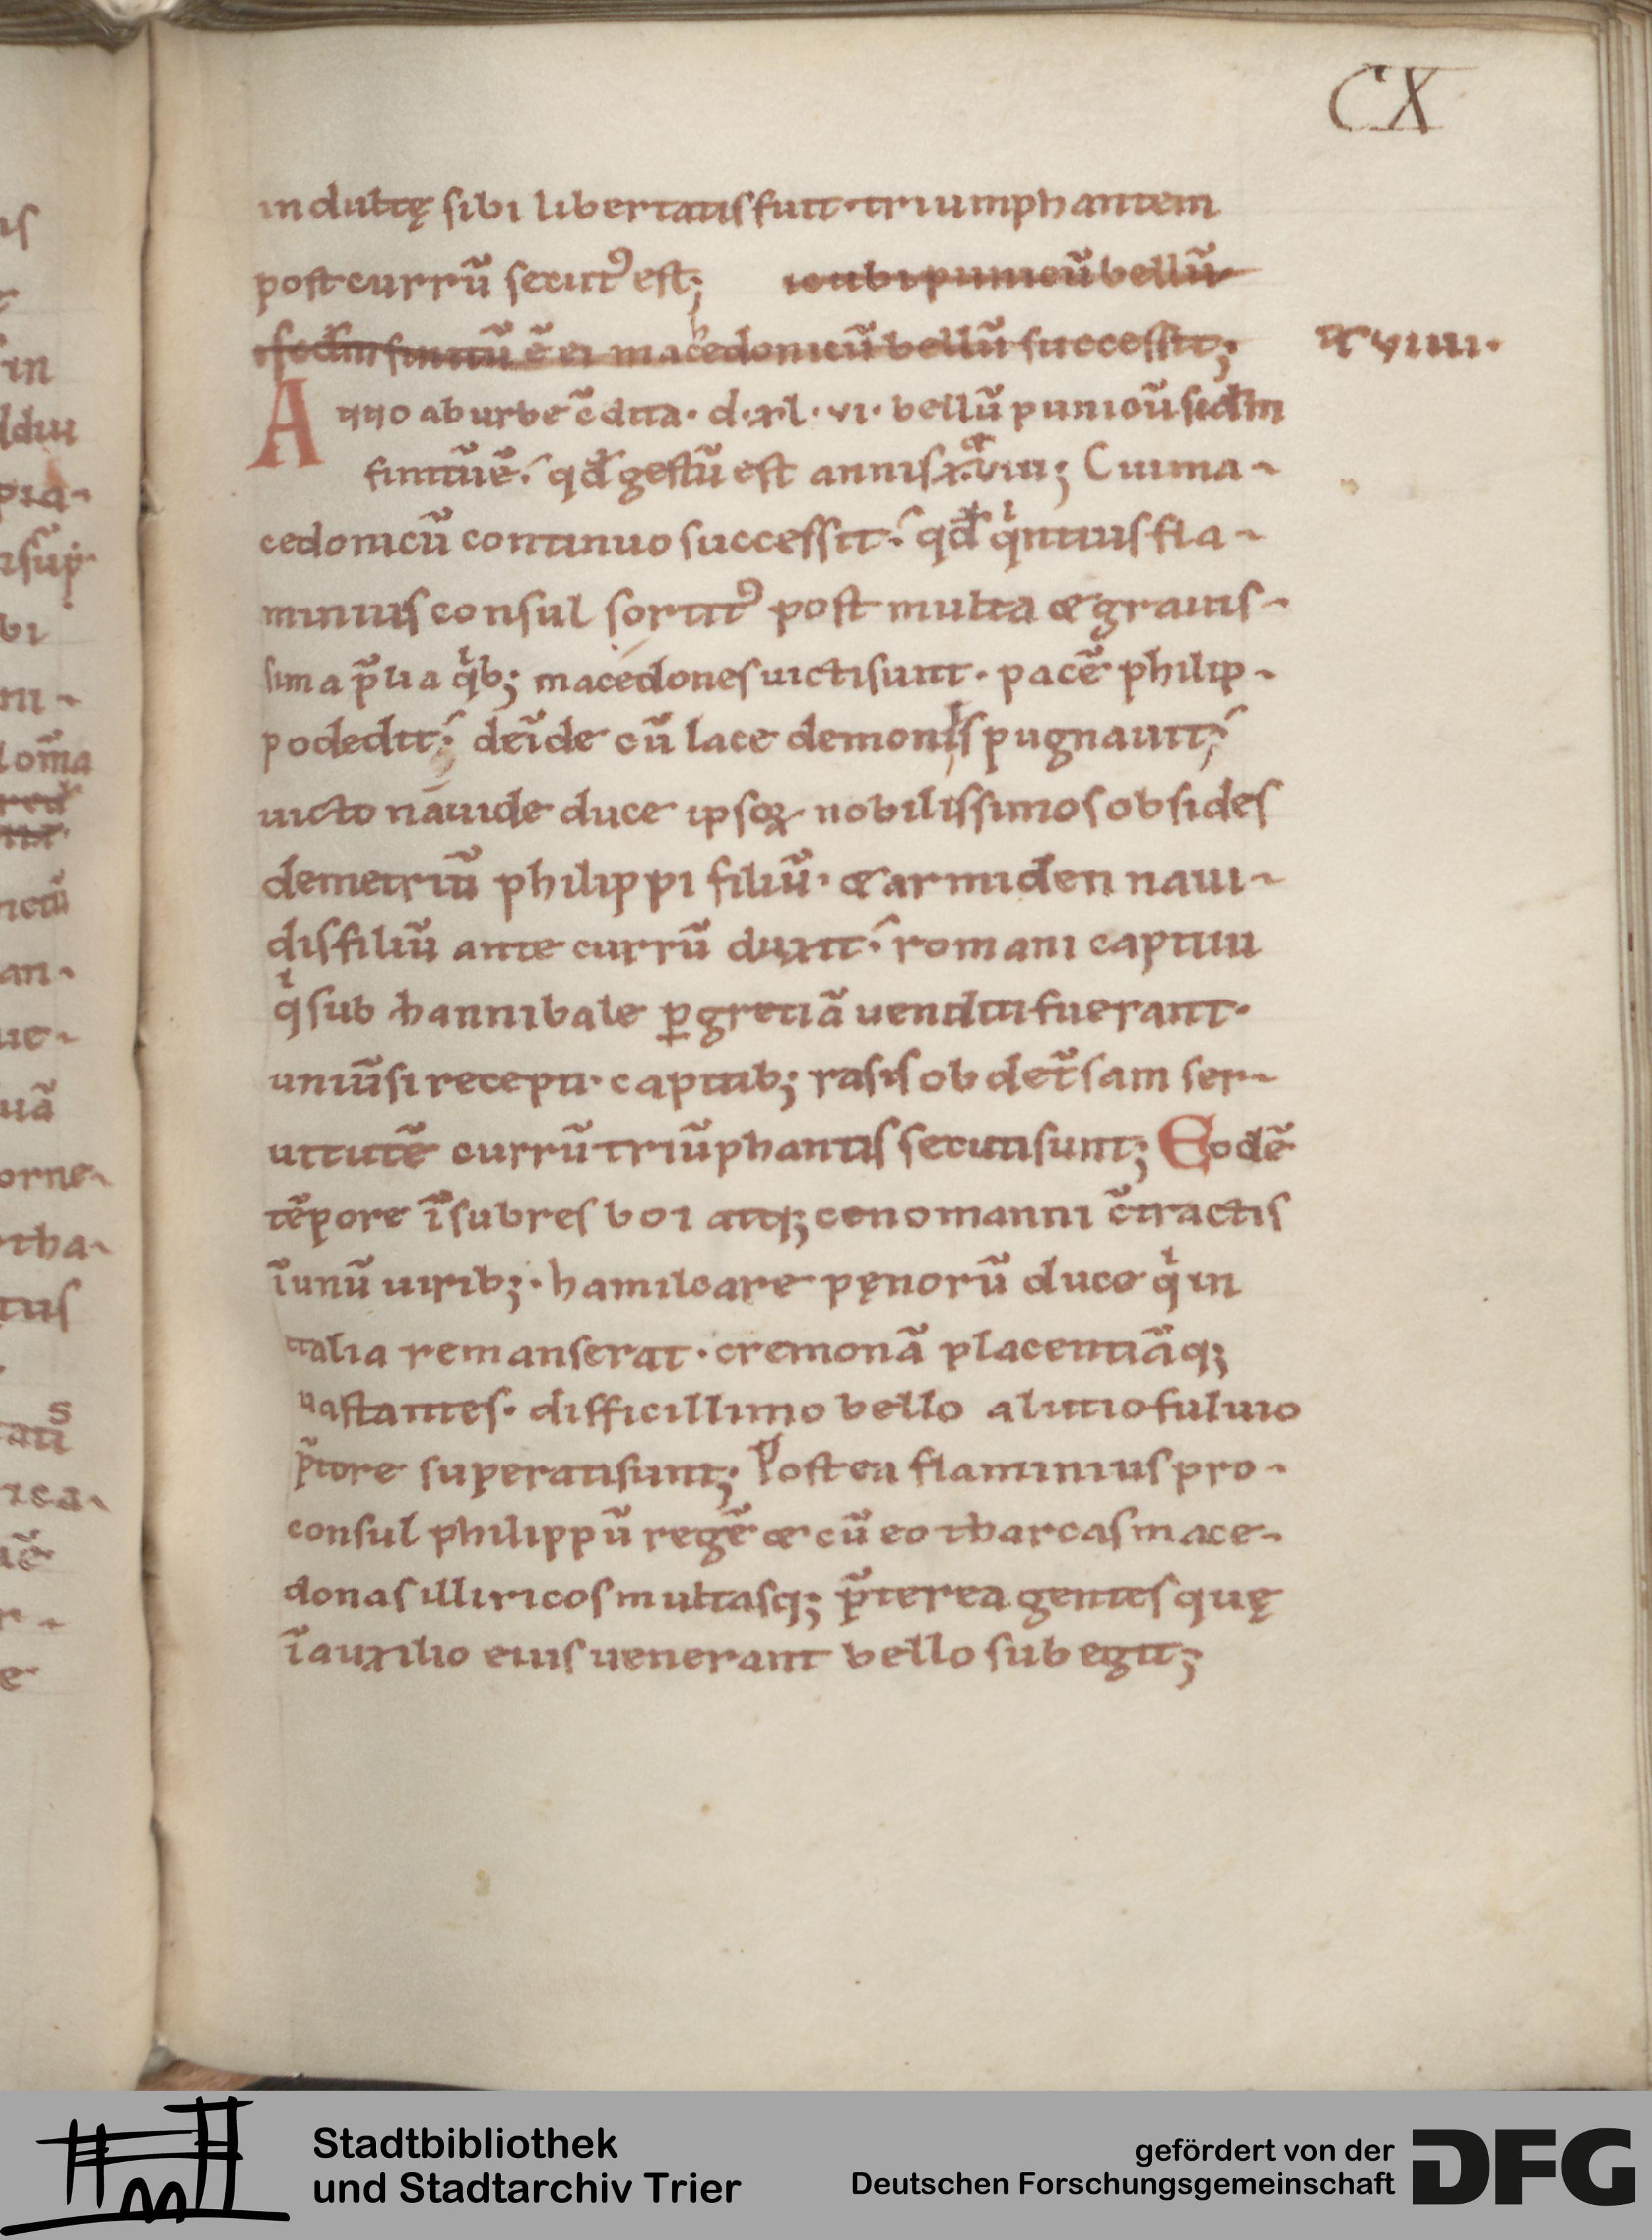 CX
indultę sibi libertatis fuit· triumphantem
post currū secut᷒ est; ı ubi punicū bellū
scd̄m finitū ē ei macedonicū bellū successit;
xviiii·
Anno ab urbe c̄dita· d·xl·vi· bellū punicū scd̄m
finitū ē· qđ gestū est annis xviii; Cui ma-
cedonicū continuo successit· qđ qͥntius fla-
minius consul sortit᷒ post multa & grauis-
sima p̄lia qͥb; macedones uicti sunt· pacē philip-
po dedit· deīde cū lacedemoniis pugnauit·
uicto nauide duce ipsoꝝ nobilissimos obsides
demetriū philippi filiū· & armiden naui-
dis filiū ante currū duxit· romani captiui
qͥ sub hannibale ꝑ gretiā uenditi fuerant·
uniūsi recepti· capitib; rasis ob det̄sam ser-
uitutē currū triūphantis secuti sunt; Eodē
tēpore īsubres boi atq; cenomanni c̄tractis
ī unū uirib;· hamilcare pęnorū duce qͥ in
italia remanserat· cremonā placentiāq;
uastantes· difficillimo bello a lutio fuluio
p̄tore superati sunt; Postea flaminius pro-
consul philippū regē & cū eo tharcas mace-
donas illiricos multasq; p̄terea gentes quę
ī auxilio eius uenerant bello subegit;
Stadtbibliothek
und Stadtarchiv Trier
gefördert von der
Deutschen Forschungsgemeinschaft
DFG